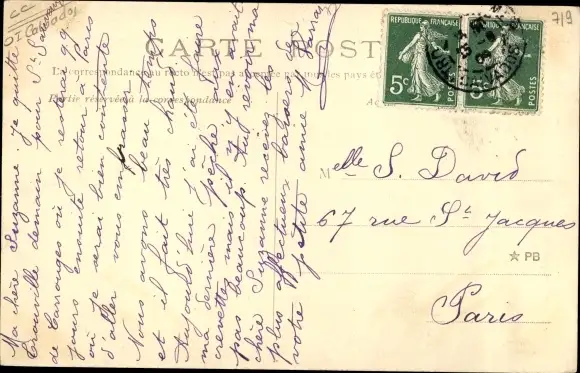 CARTE POSTALE
La correspondance au recto n'est pas acceptée par tous les pays
Partie réservée à la correspondance
REPUBLIQUE FRANÇAISE
5c
POSTES
REPUBLIQUE FRANÇAISE
POSTES
719
CC
Calvados
Ma chère Suzanne je quitte
Trouville demain pour St Sauveur
de Carrouges où je resterai 99
jours ensuite retour à Paris
où je serai bien contente
d'aller vous embrasser.
Nous avons beau temps
et il fait très chaud.
Aujourd'hui j'ai été faire
ma dernière pêche aux
crevettes mais il n'y en avait
pas beaucoup. Au revoir ma
chère Suzanne recevez les
plus affectueux baisers de
votre petite amie
Melle S. David
67 rue St Jacques
Paris
PB